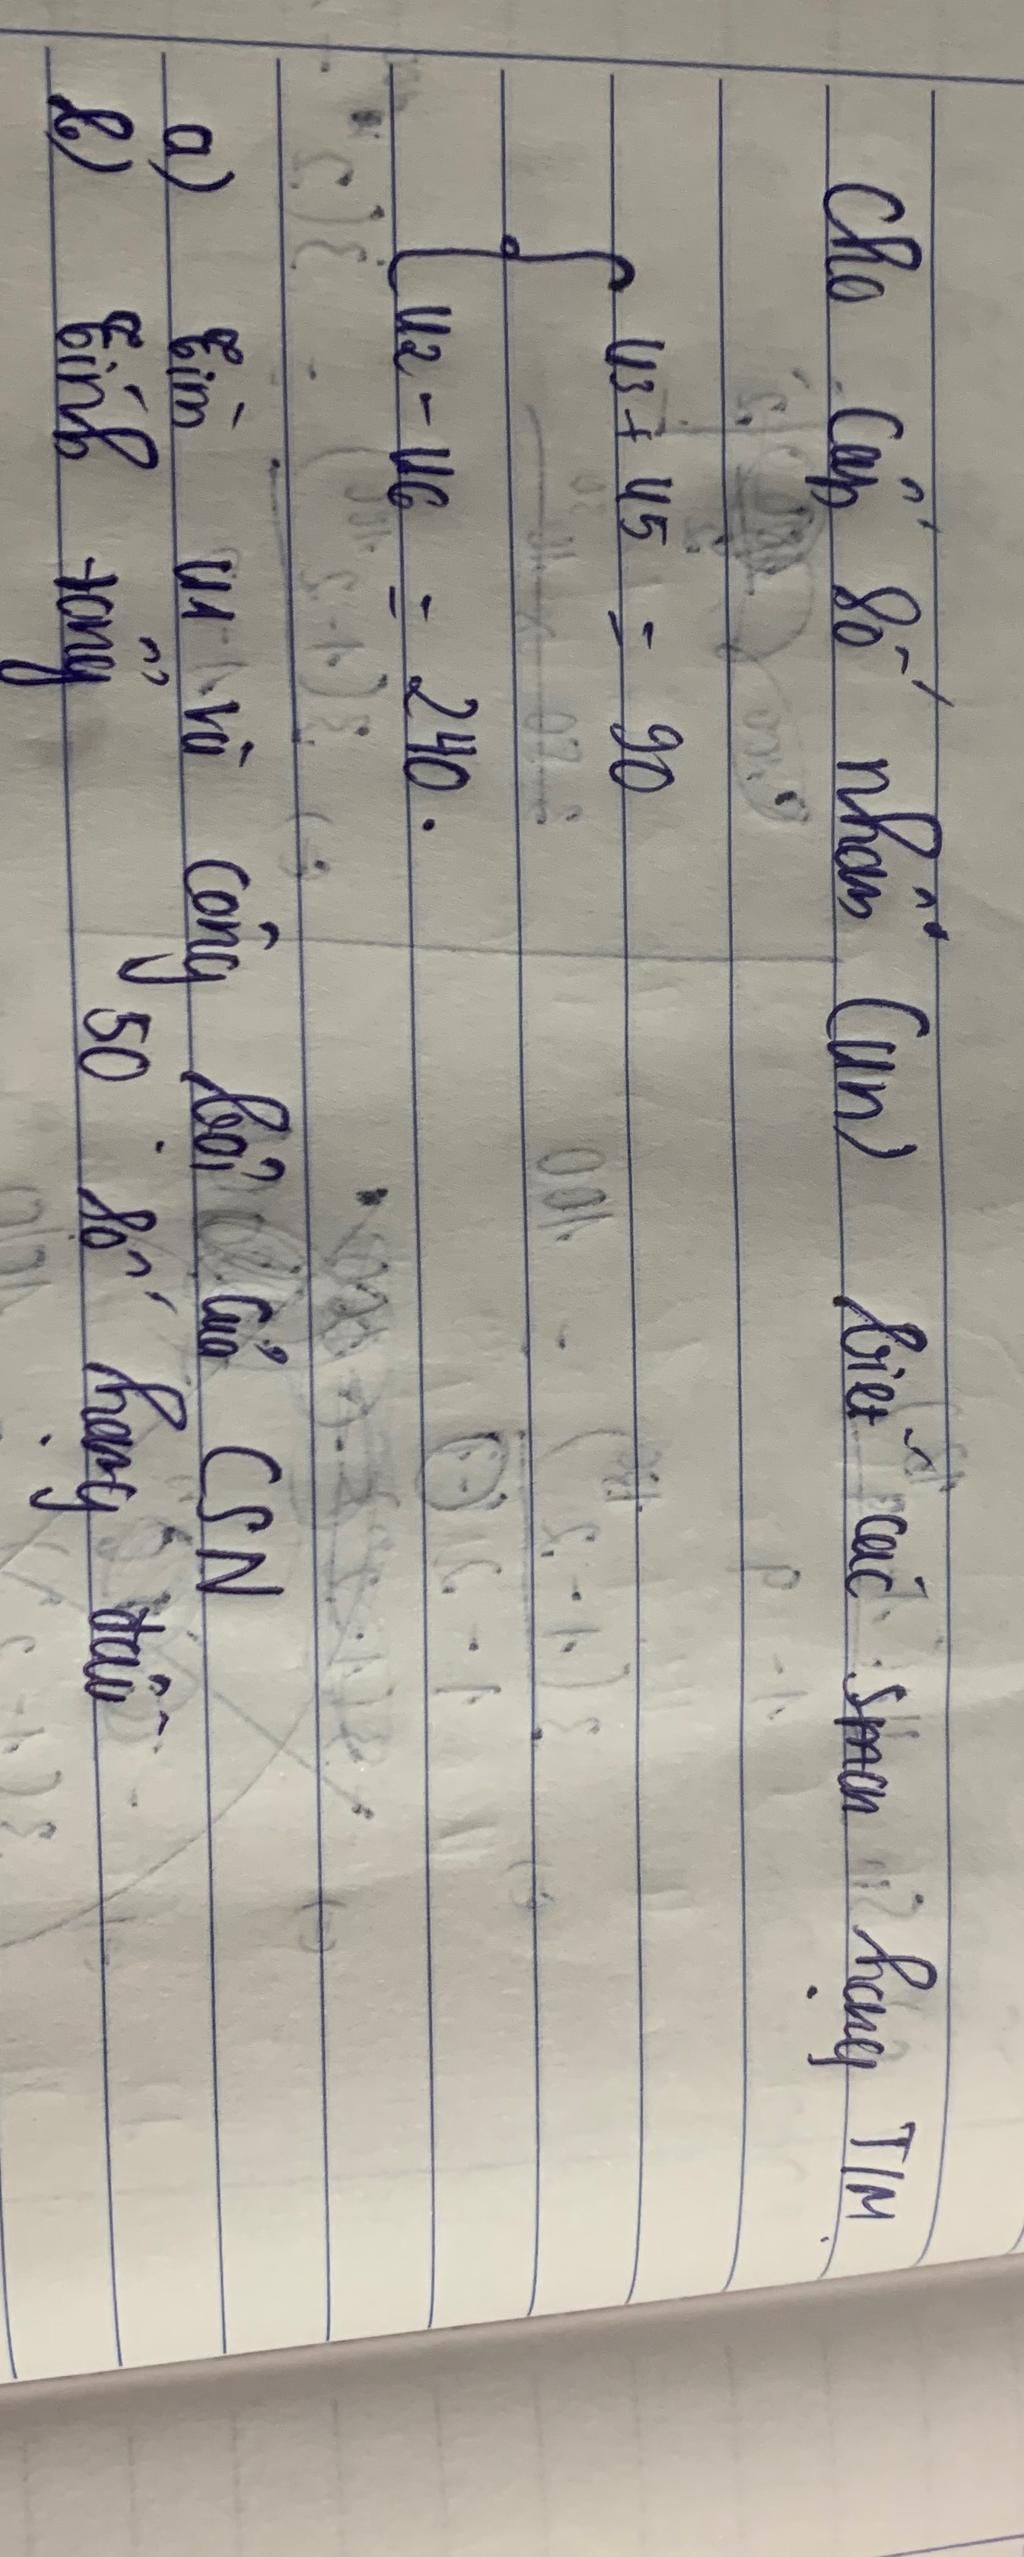 Cho cấp số nhân (un) biết các số hạng T/M
u3 + u5 = 90
u2 - u6 = 240.
a) Tìm u1 và công bội của CSN
b) Tính tổng 50 số hạng đầu